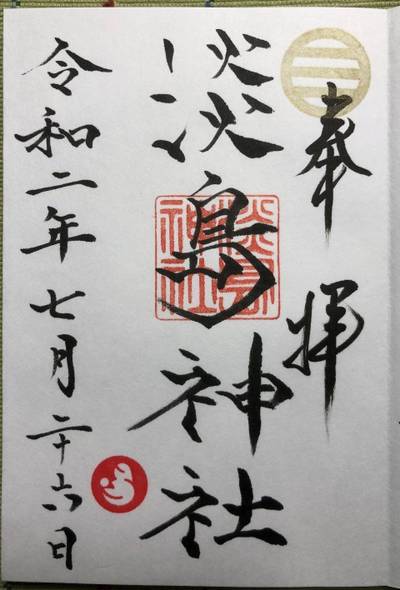 奉拝
淡島神社
令和二年七月二十六日